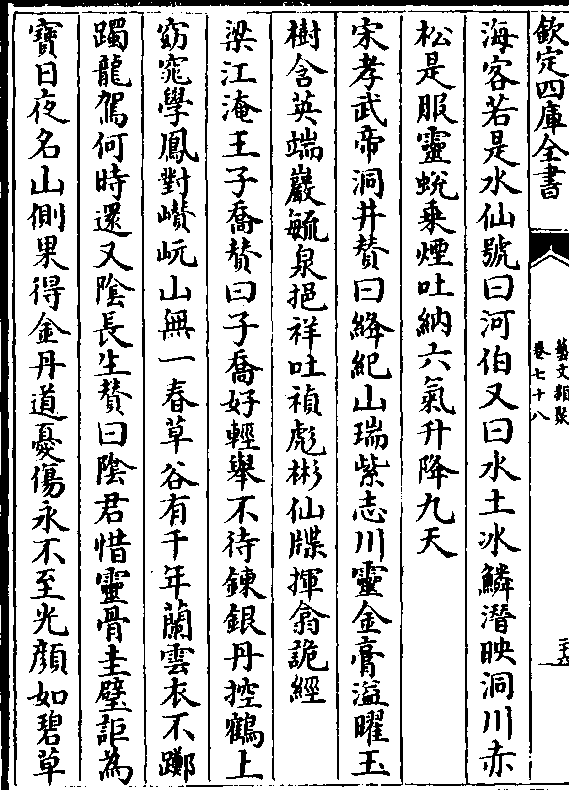 欽定四庫全書
藝文類聚
卷七十八
海客若是水仙號曰河伯又曰水土冰鱗潛映洞川赤
松是服靈蛻乗煙吐納六氣升降九天
宋孝武帝洞井賛曰絳紀山瑞紫志川靈金膏溢曜玉
樹含英端巖毓泉挹祥吐禎彪彬仙牒揮翕詭經
梁江淹王子喬賛曰子喬好輕舉不待鍊銀丹控鶴上
窈窕學鳳對巑岏山無一春草谷有千年蘭雲衣不躑
躅龍駕何時還又隂長生賛曰隂君惜靈骨圭璧詎為
寶日夜名山側果得金丹道憂傷永不至光顔如碧草